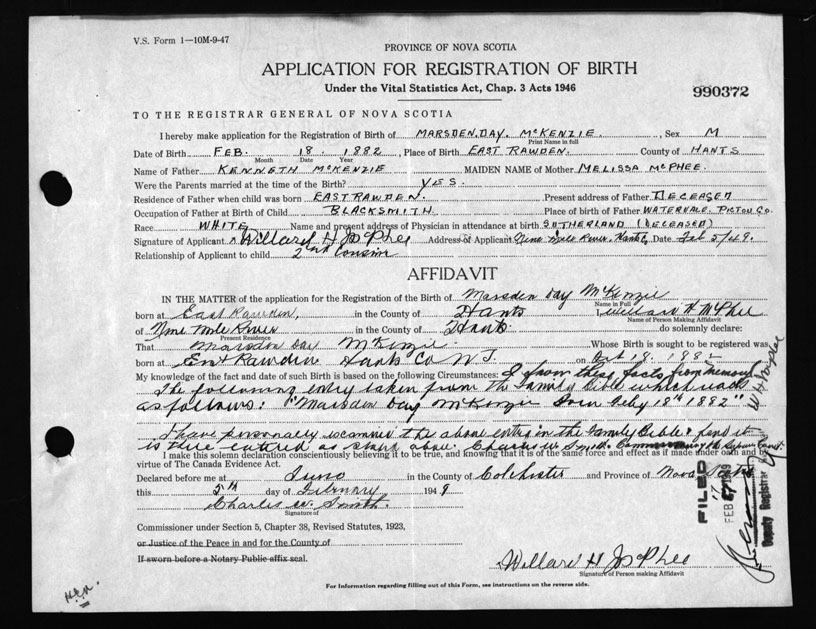 V.S. Form 1—10M-9-47
PROVINCE OF NOVA SCOTIA
APPLICATION FOR REGISTRATION OF BIRTH
Under the Vital Statistics Act, Chap. 3 Acts 1946
990372
TO THE REGISTRAR GENERAL OF NOVA SCOTIA
I hereby make application for the Registration of Birth of MARSDEN, DAY. McKENZIE., Sex M
Print Name in full
Date of Birth FEB. 18. 1882, Place of Birth EAST RAWDEN. County of HANTS
Month Date Year
Name of Father KENNETH McKENZIE MAIDEN NAME of Mother MELISSA McPHEE.
Were the Parents married at the time of the Birth? YES.
Residence of Father when child was born EAST RAWDEN. Present address of Father DECEASED
Occupation of Father at Birth of Child BLACKSMITH Place of birth of Father WATERVALE. PICTOU CO.
Race WHITE Name and present address of Physician in attendance at birth SUTHERLAND (DECEASED)
Signature of Applicant x Willard H McPhee Address of Applicant Nine Mile River, Hants, Date Feb 5/49.
Relationship of Applicant to child 2nd Cousin
AFFIDAVIT
IN THE MATTER of the application for the Registration of the Birth of Marsden Day McKenzie
Name in Full
born at East Rawden, in the County of Hants I, Willard H McPhee
Name of Person Making Affidavit
of Nine Mile River in the County of Hants. do solemnly declare:
Present Residence
That Marsden Day McKenzie Whose Birth is sought to be registered was
born at East Rawden Hants Co N.S. on 18. 1882
My knowledge of the fact and date of such Birth is based on the following Circumstances: I know these facts from memory
The following entry taken from the Family Bible which reads
as follows: "Marsden Day McKenzie Born Feby 18th 1882"
I have personally scanned the above entry in the Family Bible & find it
is true entered as stated above. Charles W Smith
I make this solemn declaration conscientiously believing it to be true, and knowing that it is of the same force and effect as if made under oath and by
virtue of The Canada Evidence Act.
Declared before me at Truro in the County of Colchester and Province of Nova Scotia
this 5th day of February 1949
Charles W. Smith.
Signature of
Commissioner under Section 5, Chapter 38, Revised Statutes, 1923,
or Justice of the Peace in and for the County of
If sworn before a Notary Public affix seal.
Willard H McPhee
Signature of Person making Affidavit
For Information regarding filling out of this Form, see instructions on the reverse side.
FILED
FEB 1949
Deputy Registrar